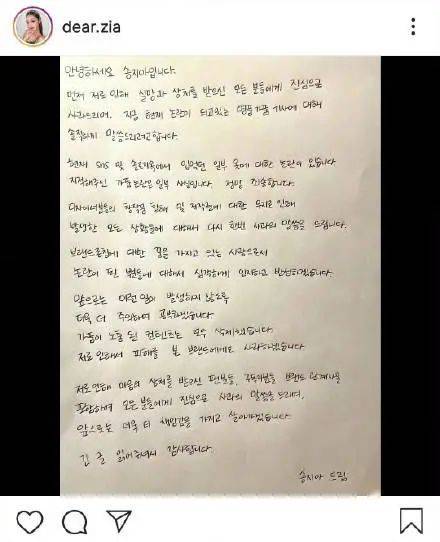 dear.zia
안녕하세요 송지아입니다.
먼저 저로 인해 실망과 상처를 받으신 모든 분들에게 진심으로
사과드리며, 지금 현재 논란이 되고있는 명품가품 기사에 대해
솔직하게 말씀드리려고합니다.
현재 SNS 및 솔로지옥에서 입었던 일부 옷에 대한 논란이 있습니다
지적해주신 가품논란은 일부 사실입니다. 정말 죄송합니다.
디자이너분들의 창작물 침해 및 저작권에 대한 무지로 인해
발생한 모든 상황들에 대해서 다시 한번 사과의 말씀을 드립니다.
브랜드론칭에 대한 꿈을 가지고 있는 사람으로서
논란이 된 부분들에 대해서 심각하게 인지하고 반성하겠습니다.
앞으로는 이런 일이 발생하지 않도록
더욱 더 주의하며 공부하겠습니다.
가품이 노출 된 컨텐츠는 모두 삭제하였습니다.
저로 인해서 피해를 본 브랜드에게도 사과하고싶습니다.
저로 인해 마음의 상처를 받으신 팬분들, 구독자분들 브랜드 관계자를
포함하여 모든 분들에게 진심으로 사과의 말씀을 드리며,
앞으로는 더욱 더 책임감을 가지고 살아가겠습니다.
긴 글 읽어주셔서 감사합니다.
송지아 드림